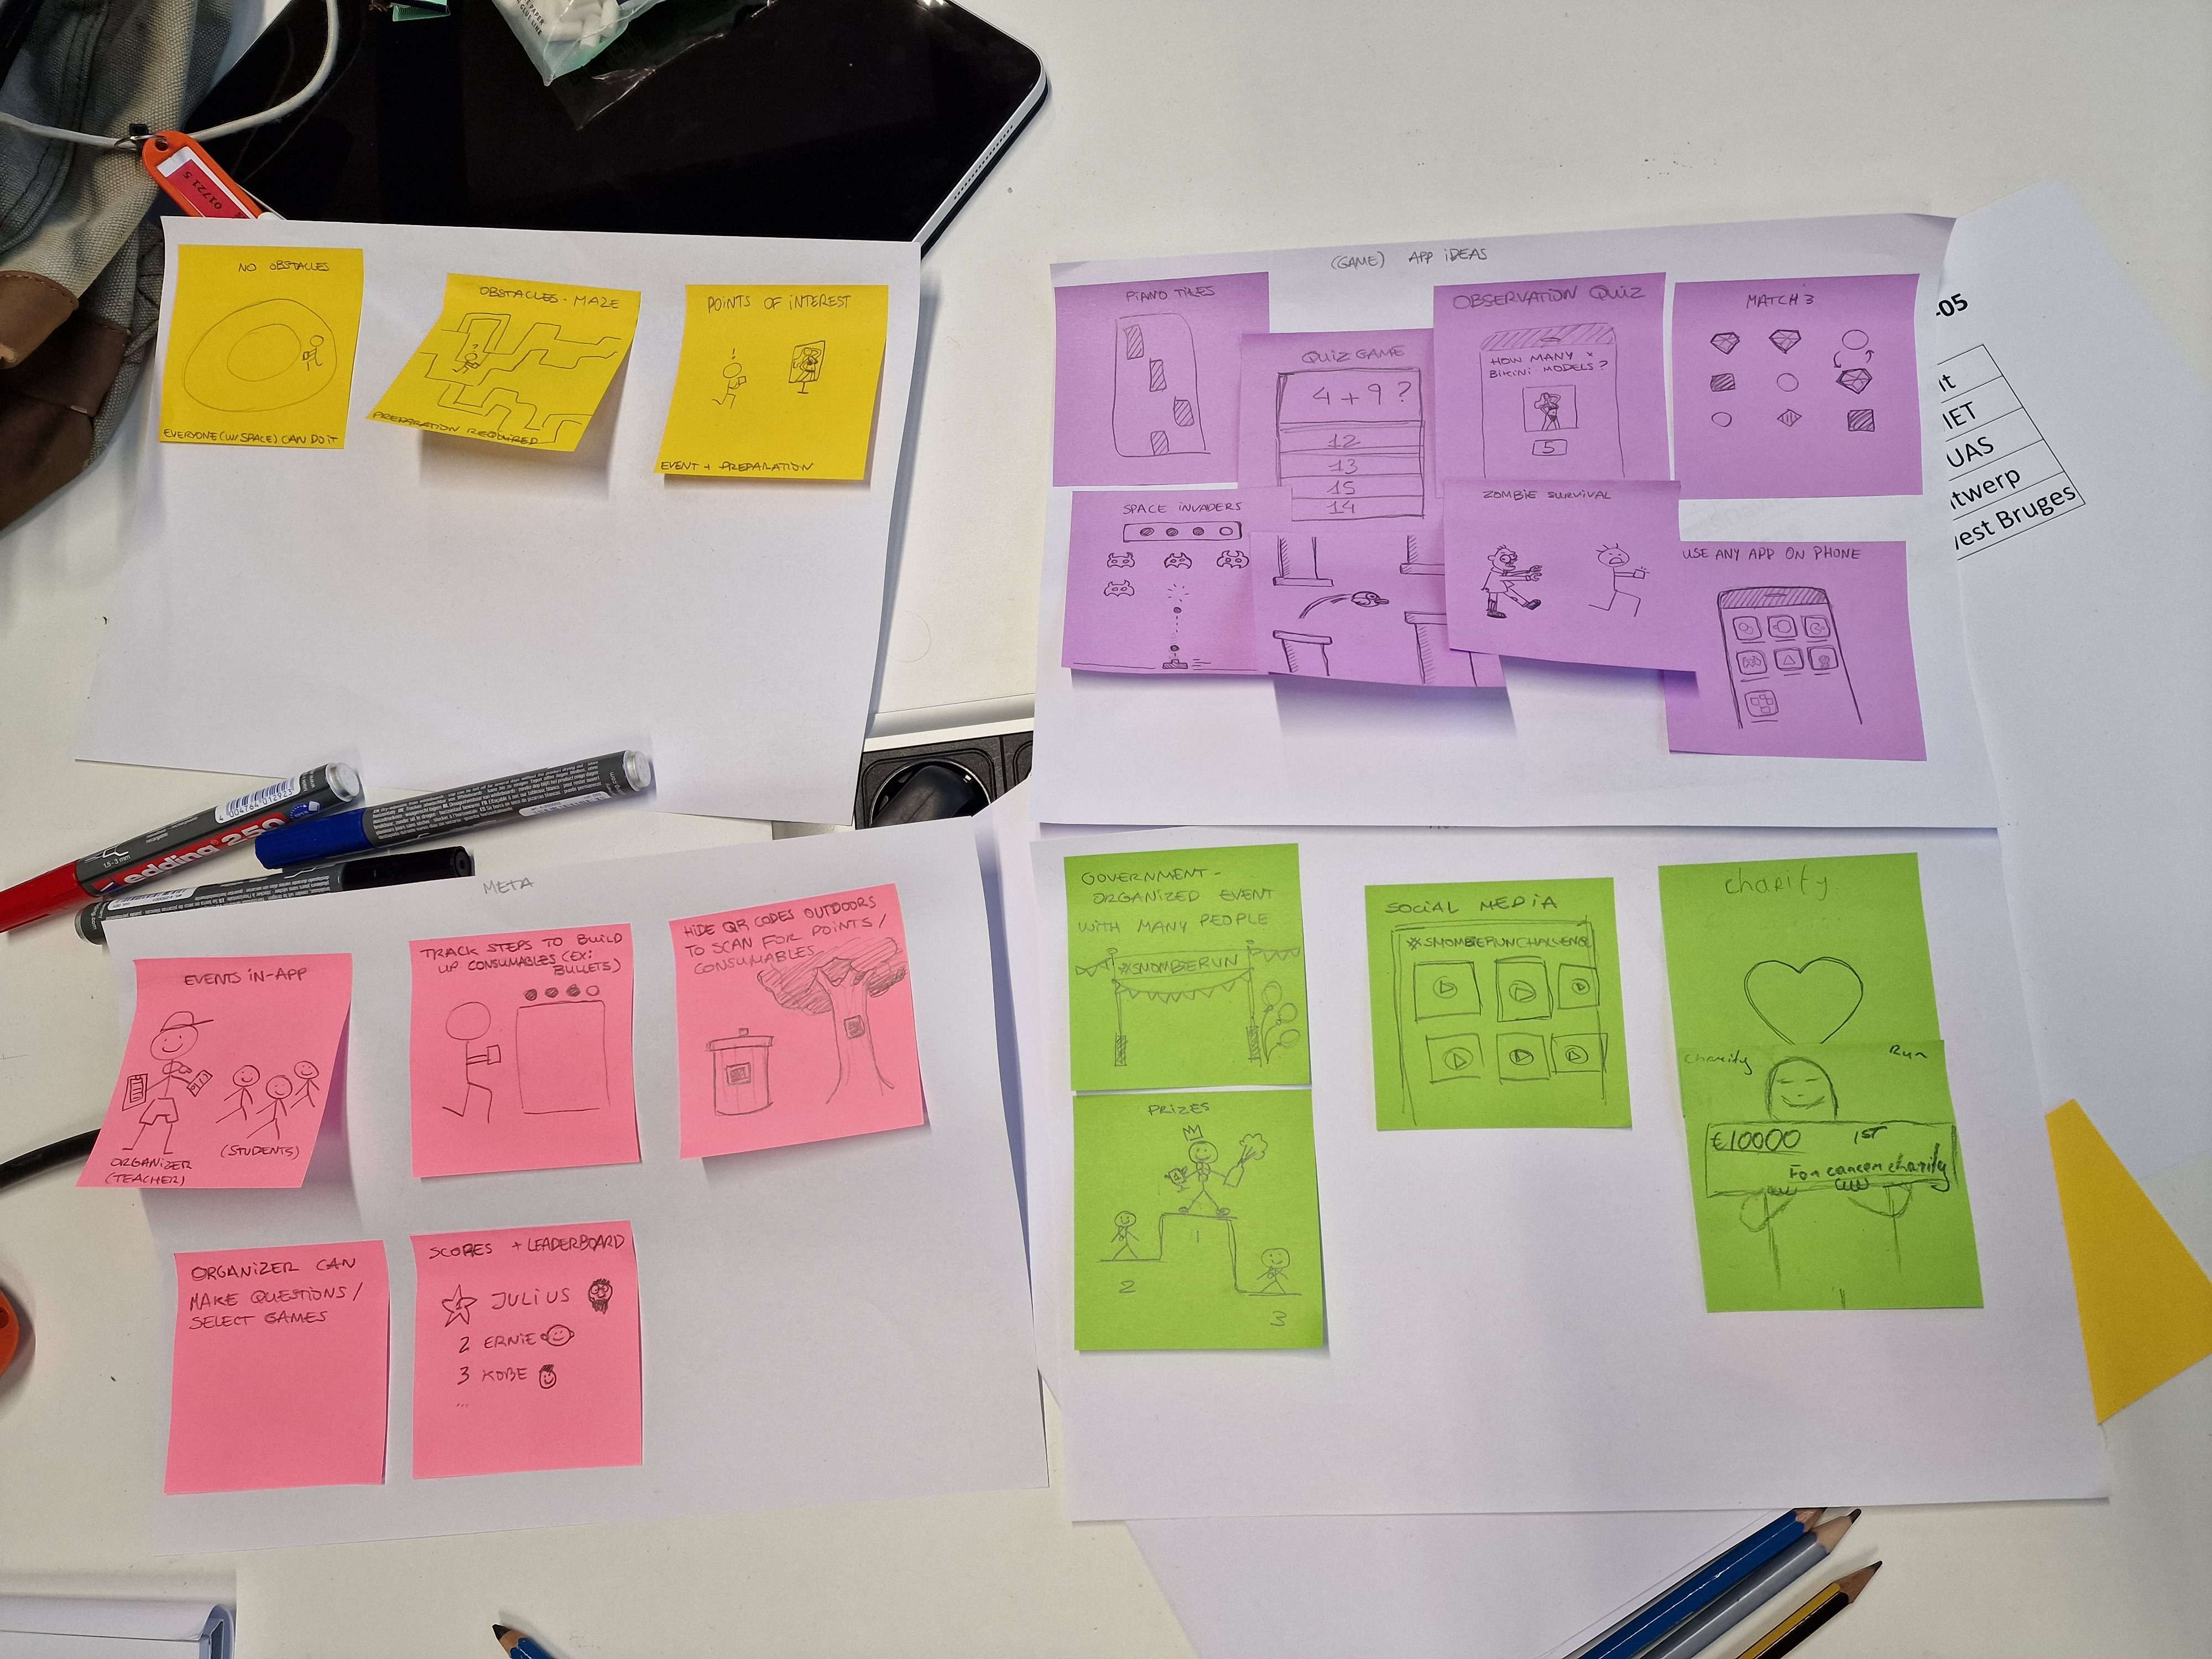 01721 5
NO OBSTACLES
EVERYONE (W/ SPACE) CAN DO IT
OBSTACLES - MAZE
?
PREPARATION REQUIRED
POINTS OF INTEREST
!
EVENT + PREPARATION
(GAME) APP IDEAS
PIANO TILES
QUIZ GAME
4 + 9 ?
12
13
15
14
OBSERVATION QUIZ
HOW MANY
BIKINI MODELS?
5
MATCH 3
SPACE INVADERS
ZOMBIE SURVIVAL
USE ANY APP ON PHONE
-05
it
IET
UAS
twerp
est Bruges
4 004764 012923
edding 250
1.5-3 mm
META
EVENTS IN-APP
ORGANIZER
(TEACHER)
(STUDENTS)
TRACK STEPS TO BUILD
UP CONSUMABLES (EX:
BULLETS)
HIDE QR CODES OUTDOORS
TO SCAN FOR POINTS /
CONSUMABLES
ORGANIZER CAN
MAKE QUESTIONS /
SELECT GAMES
SCORES + LEADERBOARD
1 JULIUS
2 ERNIE
3 KOBE
...
GOVERNMENT-
ORGANIZED EVENT
WITH MANY PEOPLE
#SMOMBIERUN
PRIZES
1
2
3
SOCIAL MEDIA
#SMOMBIERUNCHALLENGE
charity
charity Run
€10000 1ST
For cancer charity